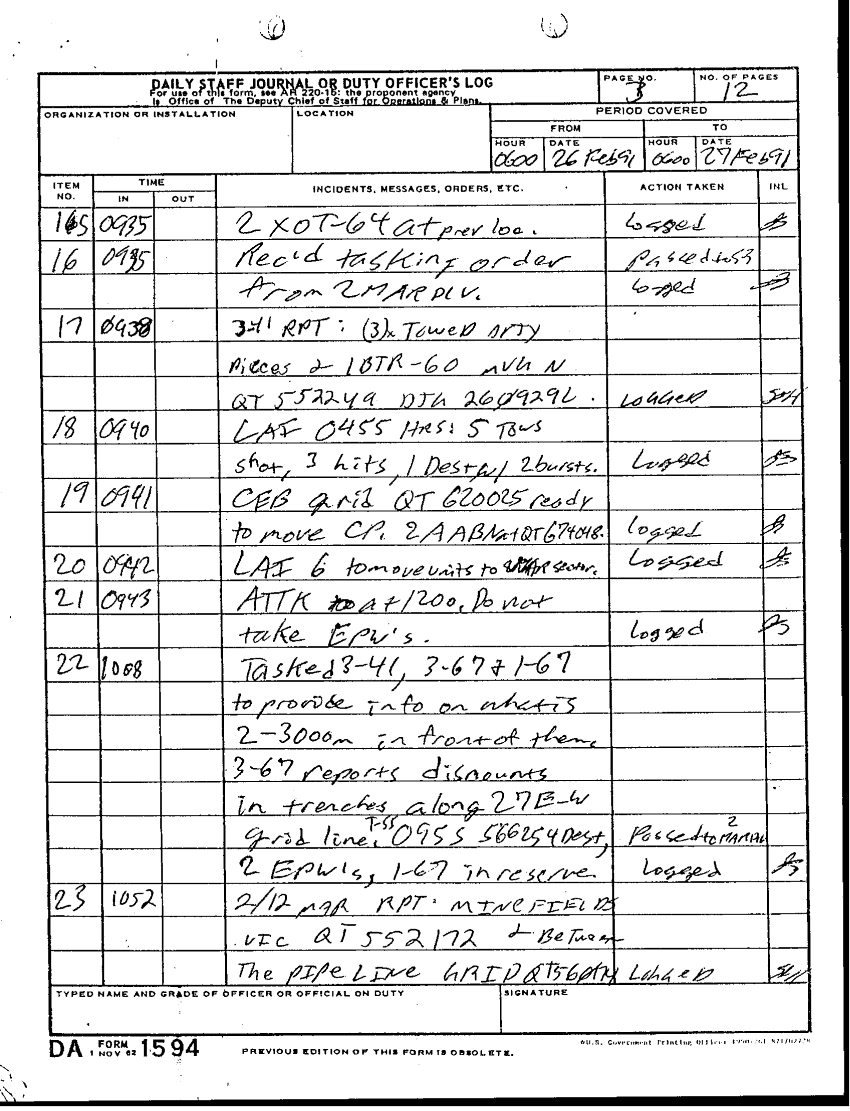 DAILY STAFF JOURNAL OR DUTY OFFICER'S LOG
For use of this form, see AR 220-15; the proponent agency
is Office of The Deputy Chief of Staff for Operations & Plans.
PAGE NO.
3
NO. OF PAGES
12
ORGANIZATION OR INSTALLATION
LOCATION
PERIOD COVERED
FROM
TO
HOUR
DATE
HOUR
DATE
0600
26 Feb 91
0600
27 Feb 91
ITEM NO.
TIME
IN
OUT
INCIDENTS, MESSAGES, ORDERS, ETC.
ACTION TAKEN
INL
15 0935 2 X OT-64 at prev loc. Logged
16 0935 Rec'd tasking order Passed to S3
from 2MARDIV. Logged
17 0938 3-41 RPT: (3)x Towed Arty
Pieces & 1 BTR-60 MVG N
QT 552249 DTG 260929L. LOGGED
18 0940 LAI 0455 HRS: 5 Tows
shot, 3 hits, 1 Dest w/ 2 bursts. Logged
19 0941 CEB grid QT 620025 ready
to move CP. 2AABN at QT 674048. logged
20 0942 LAI 6 to move units to sector. Logged
21 0943 ATTK at 1200, Do not
take EPW's. logged
22 1008 Tasked 3-41, 3-67 & 1-67
to provide info on what is
2-3000m in front of them.
3-67 reports dismounts
in trenches along 27 E-W
grid line. T-55 0955 566254 Dest, Passed to 2
2 EPW's, 1-67 in reserve. Logged
23 1052 2/12 MAR RPT: MINEFIELDS
VIC QT 552172 & Between
The PIPELINE GRID LOGGED
TYPED NAME AND GRADE OF OFFICER OR OFFICIAL ON DUTY
SIGNATURE
DA FORM 1594
1 NOV 62
PREVIOUS EDITION OF THIS FORM IS OBSOLETE.
U.S. Government Printing Office: